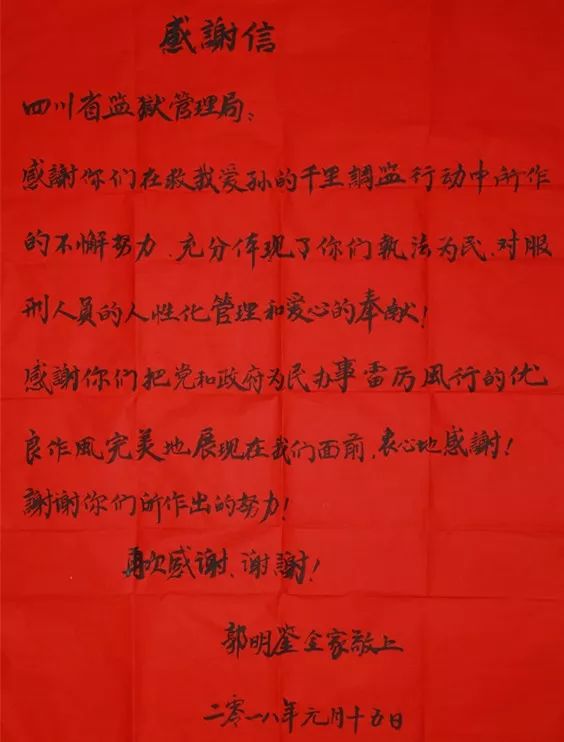 感謝信
四川省监獄管理局：
感謝你们在救我爱孙的千里調监行动中所作
的不懈努力、充分体现了你们執法为民、对服
刑人员的人性化管理和爱心的奉献！
感謝你们把党和政府为民办事雷厉風行的优
良作風完美地展现在我们面前，衷心地感謝！
謝谢你们所作出的努力！
再次感谢、谢謝！
郭明鉴全家敬上
二零一八年元月十五日